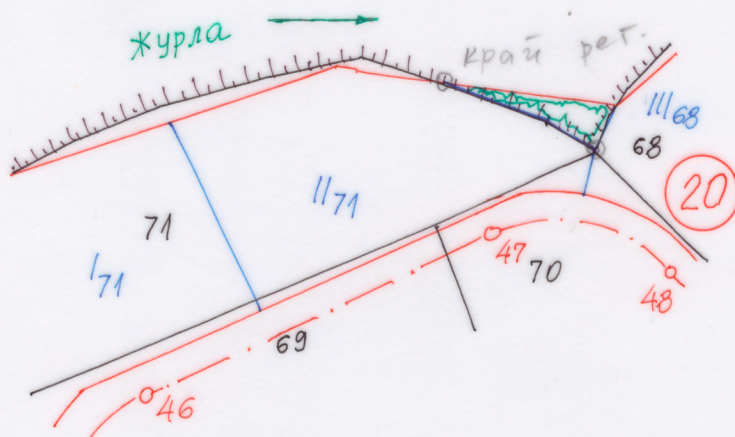 журла
край рег.
III 68
68
20
II 71
71
I 71
47
70
48
69
46